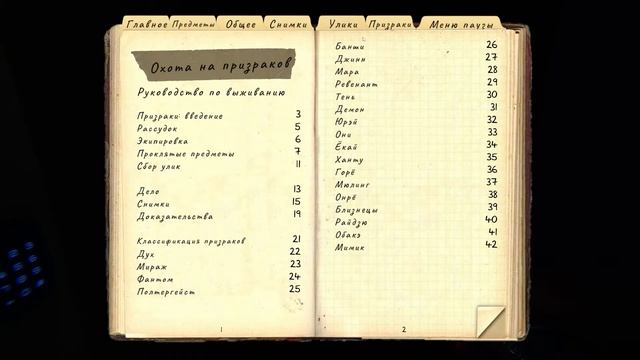 Главное Предметы Общее Снимки Улики Призраки Меню паузы
Охота на призраков
Руководство по выживанию
Призраки: введение 3
Рассудок 5
Экипировка 6
Проклятые предметы 7
Сбор улик 11
Дело 13
Снимки 15
Доказательства 19
Классификация призраков 21
Дух 22
Мираж 23
Фантом 24
Полтергейст 25
1
Банши 26
Джинн 27
Мара 28
Ревенант 29
Тень 30
Демон 31
Юрэй 32
Они 33
Ёкай 34
Ханту 35
Горё 36
Мюлинг 37
Онрё 38
Близнецы 39
Райдзю 40
Обакэ 41
Мимик 42
2